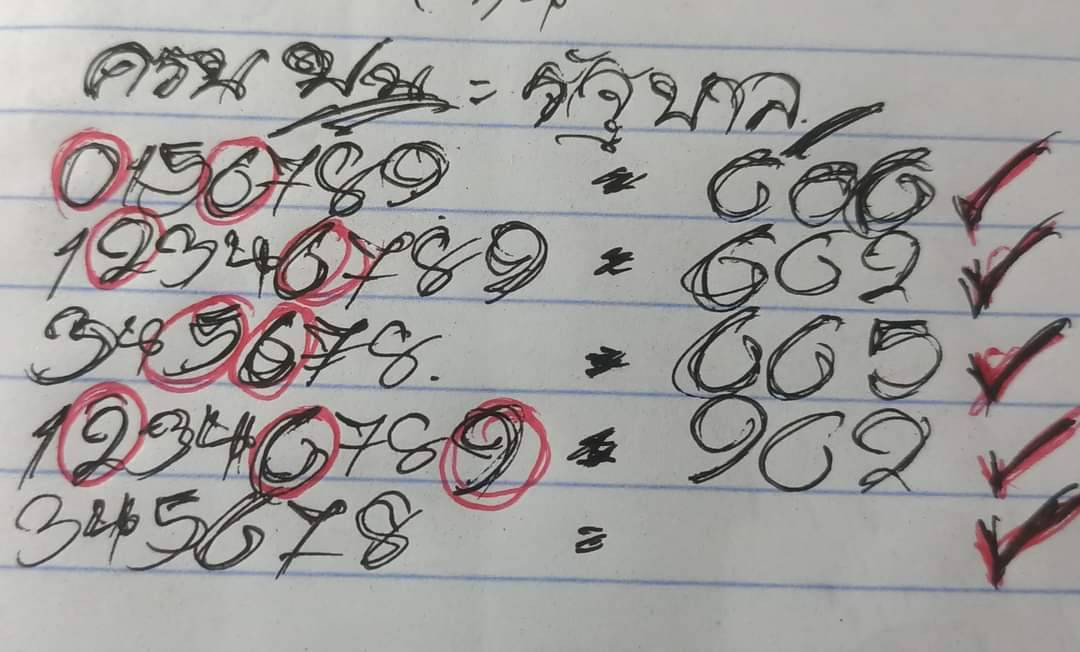 ครน ปน = รัฐบาล.
0156789 = 606
12346789 = 662
345678. = 665
12346789 = 962
345678 =